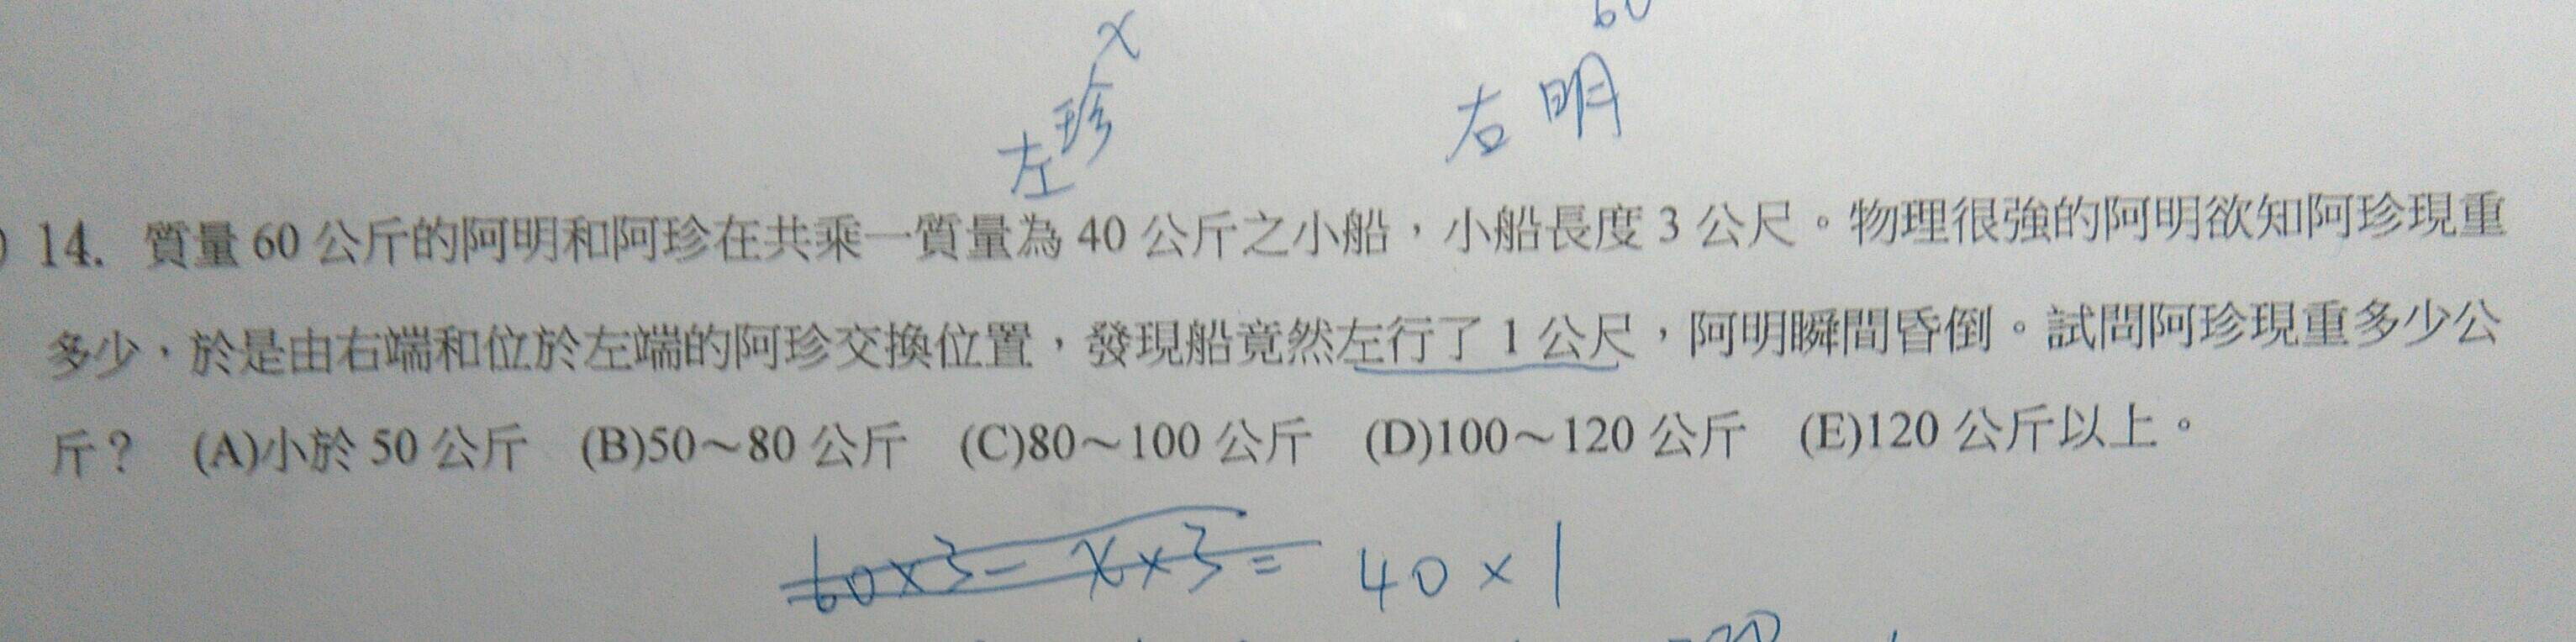 x
60
珍
右 明
左
14. 質量 60 公斤的阿明和阿珍在共乘一質量為 40 公斤之小船，小船長度 3 公尺。物理很強的阿明欲知阿珍現重
多少，於是由右端和位於左端的阿珍交換位置，發現船竟然左行了 1 公尺，阿明瞬間昏倒。試問阿珍現重多少公
斤？ (A)小於 50 公斤 (B)50～80 公斤 (C)80～100 公斤 (D)100～120 公斤 (E)120 公斤以上。
60×3－x×3＝40×1